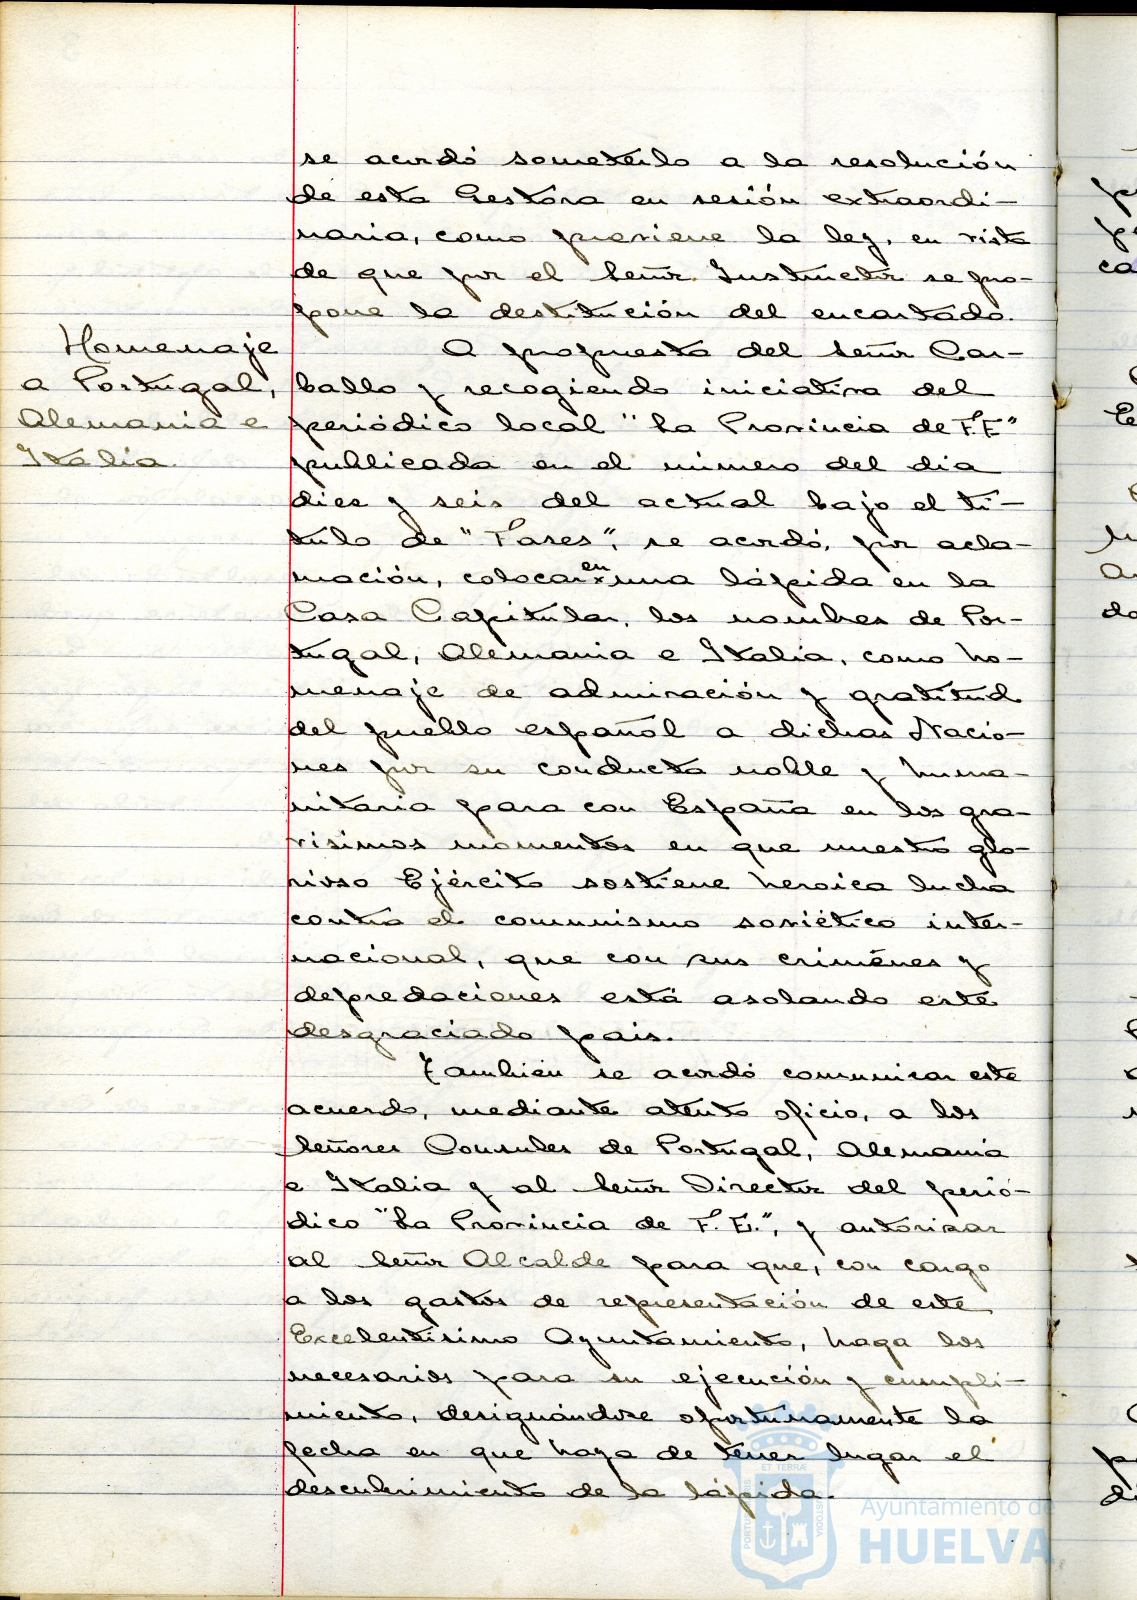 se acordó someterlo a la resolución
de esta Gestora en sesión extraordi-
naria, como previene la ley, en vista
de que por el Señor Instructor se pro-
pone la destitución del encartado.
Homenaje
a Portugal,
Alemania e
Italia.
A propuesta del Señor Car-
ballo y recogiendo iniciativa del
periódico local "La Provincia de F.E"
publicada en el número del dia
diez y seis del actual bajo el tí-
tulo de "Pases", se acordó, por acla-
mación, colocar en una lápida en la
Casa Capitular, los nombres de Por-
tugal, Alemania e Italia, como ho-
menaje de admiración y gratitud
del pueblo español a dichas Nacio-
nes por su conducta noble y huma-
nitaria para con España en los gra-
vísimos momentos en que nuestro glo-
rioso Ejército sostiene heroica lucha
contra el comunismo soviético inter-
nacional, que con sus crimenes y
depredaciones está asolando este
desgraciado pais.
Tambien se acordó comunicar este
acuerdo, mediante atento oficio, a los
Señores Consules de Portugal, Alemania
e Italia y al Señor Director del perió-
dico "La Provincia de F. E.", y autorizar
al Señor Alcalde para que, con cargo
a los gastos de representación de este
Excelentisimo Ayuntamiento, haga los
necesarios para su ejecución y cumpli-
miento, designándose oportunamente la
fecha en que haya de tener lugar el
descubrimiento de la lápida.
Ayuntamiento de
HUELVA